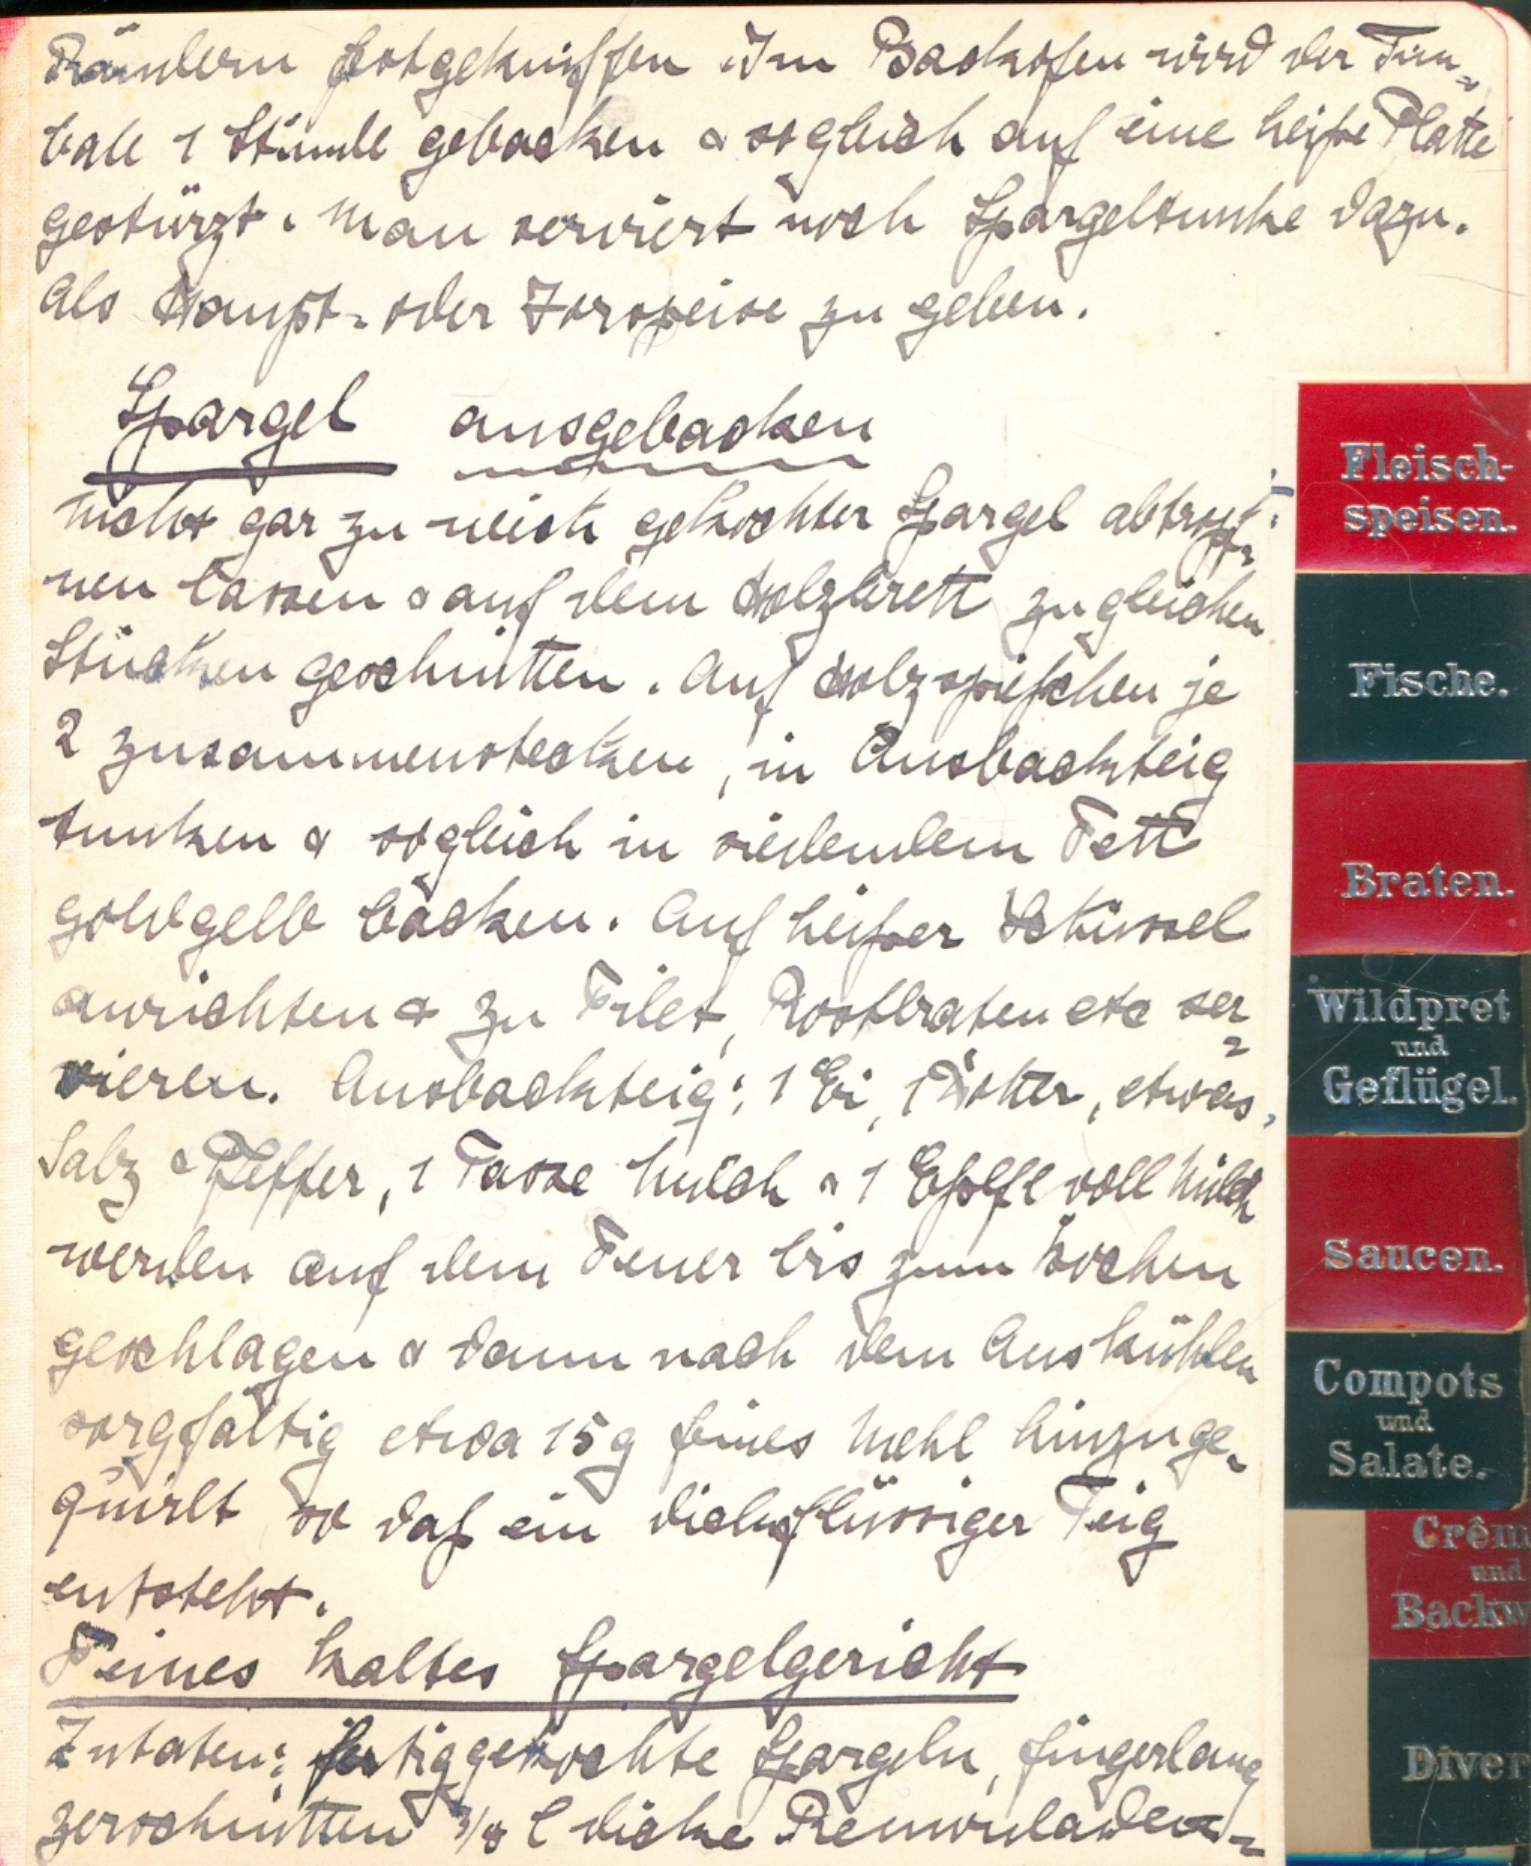 Rändern festgekniffen. Im Backofen wird der Tim=
bale 1 Stunde gebacken & sogleich auf eine heiße Platte
gestürzt. Man serviert noch Spargeltunke dazu.
Als Haupt- oder Vorspeise zu geben.
Spargel ausgebacken
Nicht gar zu weich gekochter Spargel abtropf-
nen lassen & auf dem Holzbrett zu gleichen
Stücken geschnitten. Auf Holzspießchen je
2 zusammenstecken, in Ausbackteig
tunken & sogleich in siedendem Fett
goldgelb backen. Auf heißer Schüssel
anrichten & zu Filet, Rostbraten etc ser=
vieren. Ausbackteig: 1 Ei, 1 Dotter, etwas
Salz & Pfeffer, 1 Tasse Milch & 1 Eßlfl voll Milch
werden auf dem Feuer bis zum Kochen
geschlagen & dann nach dem Auskühlen
sorgfältig etwa 15 g feines Mehl hinzuge-
quirlt so daß ein dickflüssiger Teig
entsteht.
Feines kaltes Spargelgericht
Zutaten: fertiggekochte Spargeln, fingerlang
zerschnitten 3/8 l dicke Remouladen-
Fleisch-
speisen.
Fische.
Braten.
Wildpret
und
Geflügel.
Saucen.
Compots
und
Salate.
Crêm
und
Backw
Diver